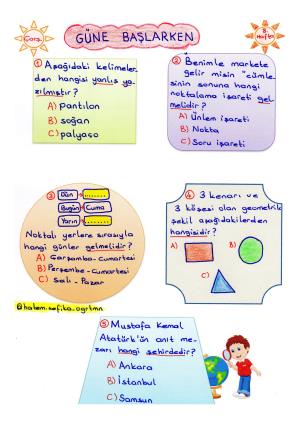 Çarş.
GÜNE BAŞLARKEN
8. Hafta
① Aşağıdaki kelimeler-
den hangisi yanlış ya-
zılmıştır?
A) pantilon
B) soğan
C) palyaço
② Benimle markete
gelir misin "cüm-
lesinin sonuna hangi
noktalama işareti gel-
melidir?
A) Ünlem işareti
B) Nokta
C) Soru işareti
③ Dün = ........
Bugün = Cuma
Yarın = ........
Noktalı yerlere sırasıyla
hangi günler gelmelidir?
A) Çarşamba-Cumartesi
B) Perşembe-Cumartesi
C) Salı-Pazar
④ 3 kenarı ve
3 köşesi olan geometrik
şekil aşağıdakilerden
hangisidir?
A)
B)
C)
@hatem.sefika.ogrtmn
⑤ Mustafa Kemal
Atatürk'ün anıt me-
zarı hangi şehirdedir?
A) Ankara
B) İstanbul
C) Samsun